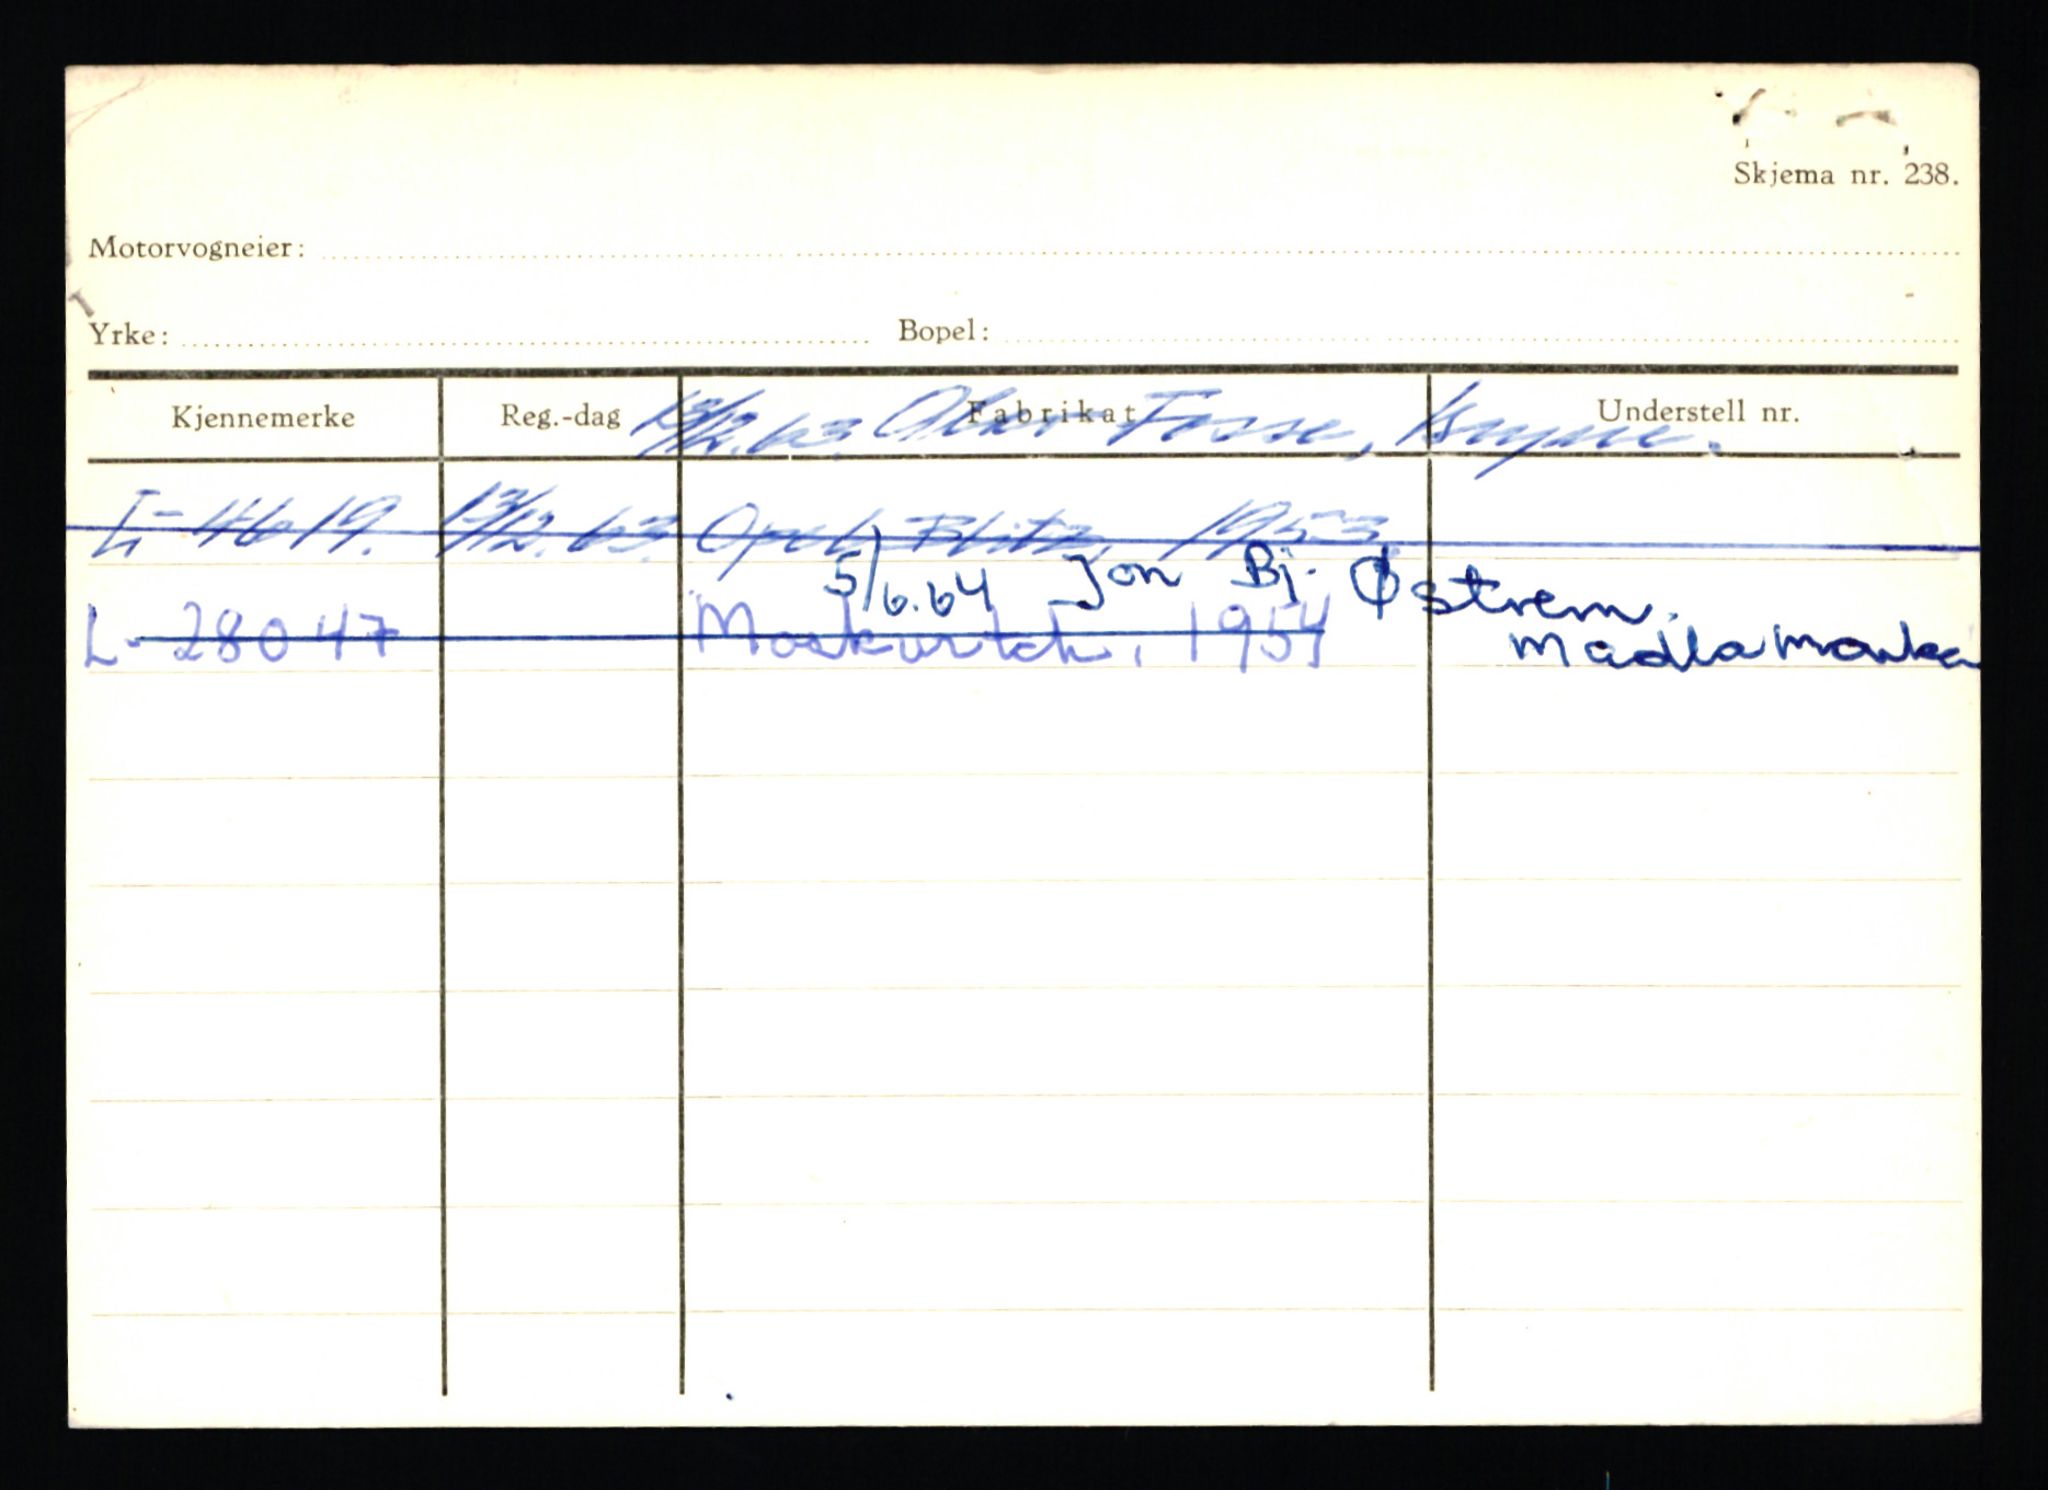 Skjema nr. 238.
Motorvogneier:
Yrke: Bopel:
Kjennemerke Reg.-dag Fabrikat Understell nr.
13/12.63. Fosse, Bryne.
L-4619. 13/12.63. Opel Blitz, 1953.
5/6.64 Jon Bj. Østrem.
Madlamarka
L-28047 Moskvitch, 1954